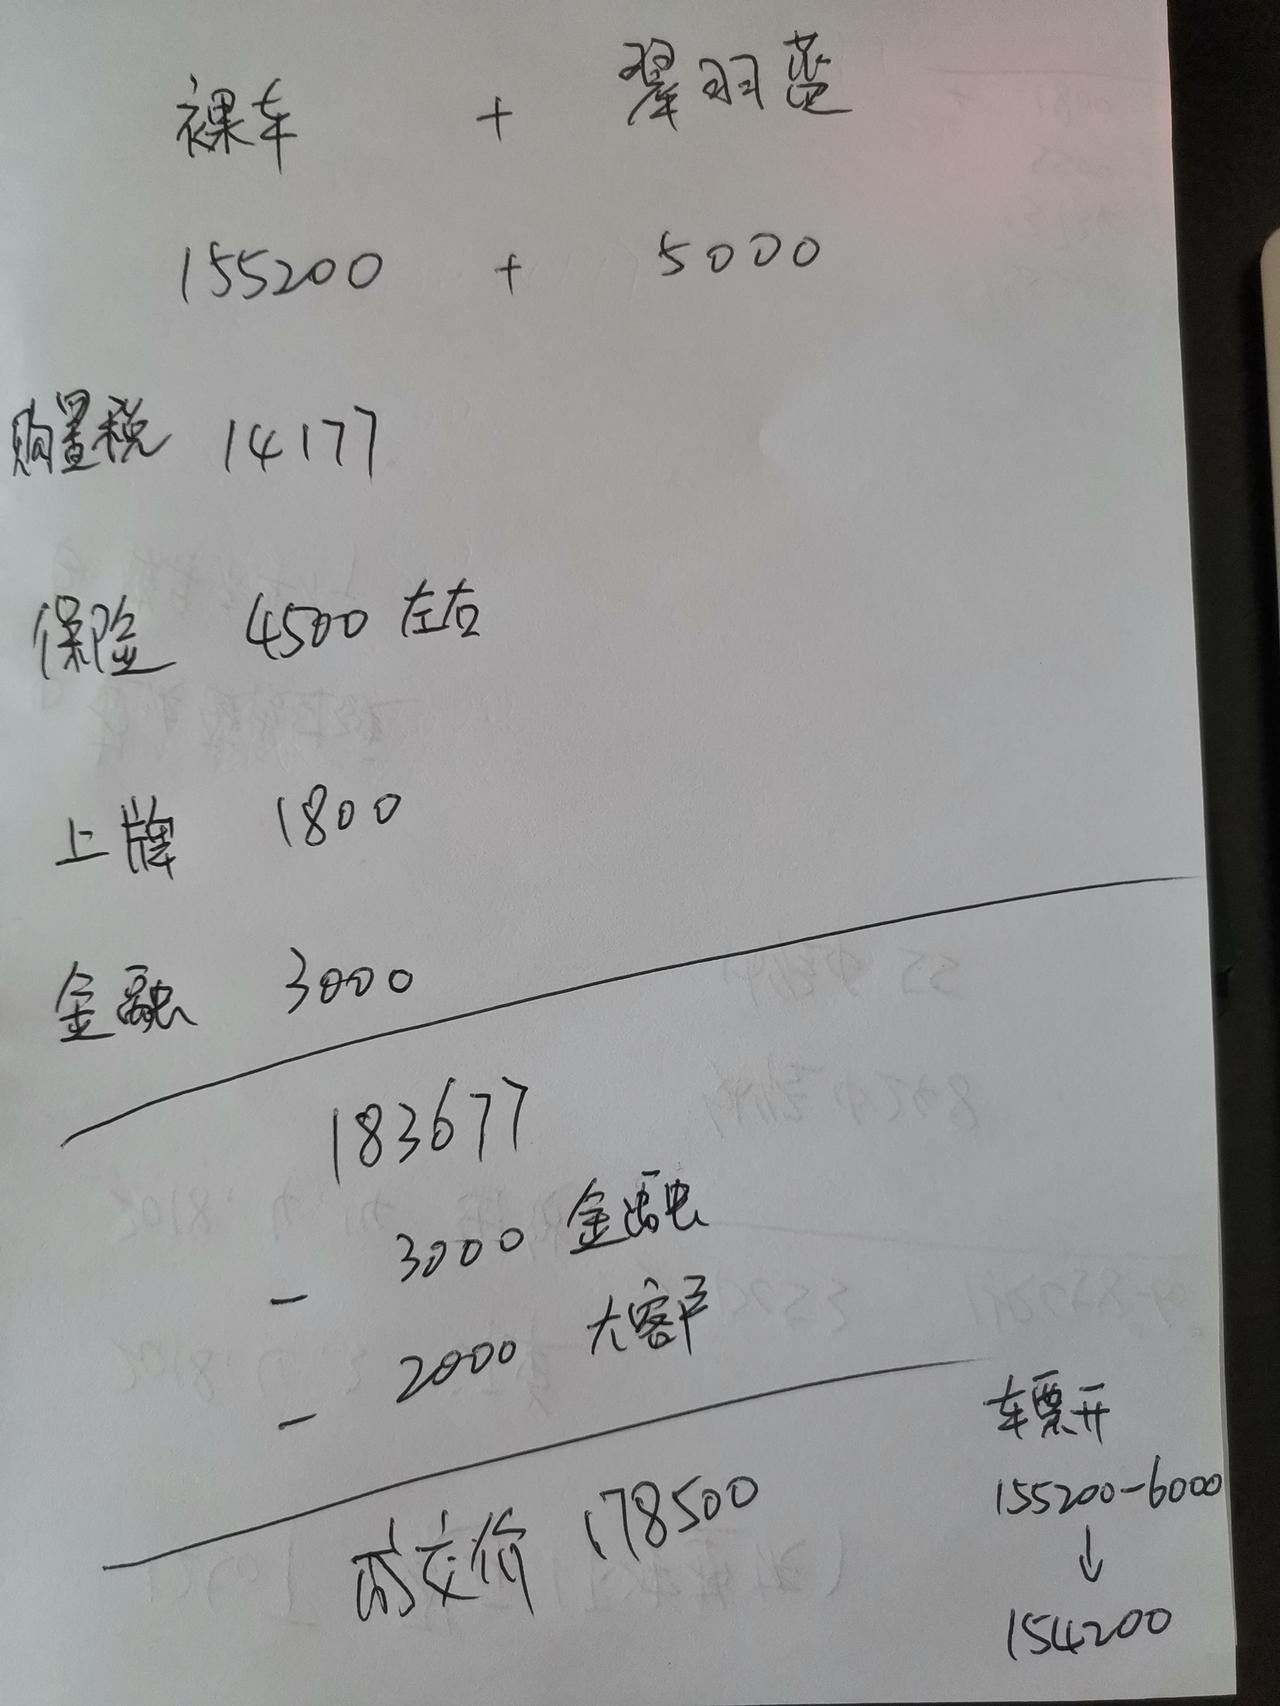 裸车 + 翠羽蓝
155200 + 5000
购置税 14177
保险 4500 左右
上牌 1800
金融 3000
183677
- 3000 金融
- 2000 大客户
成交价 178500
车票开
155200-6000
↓
154200